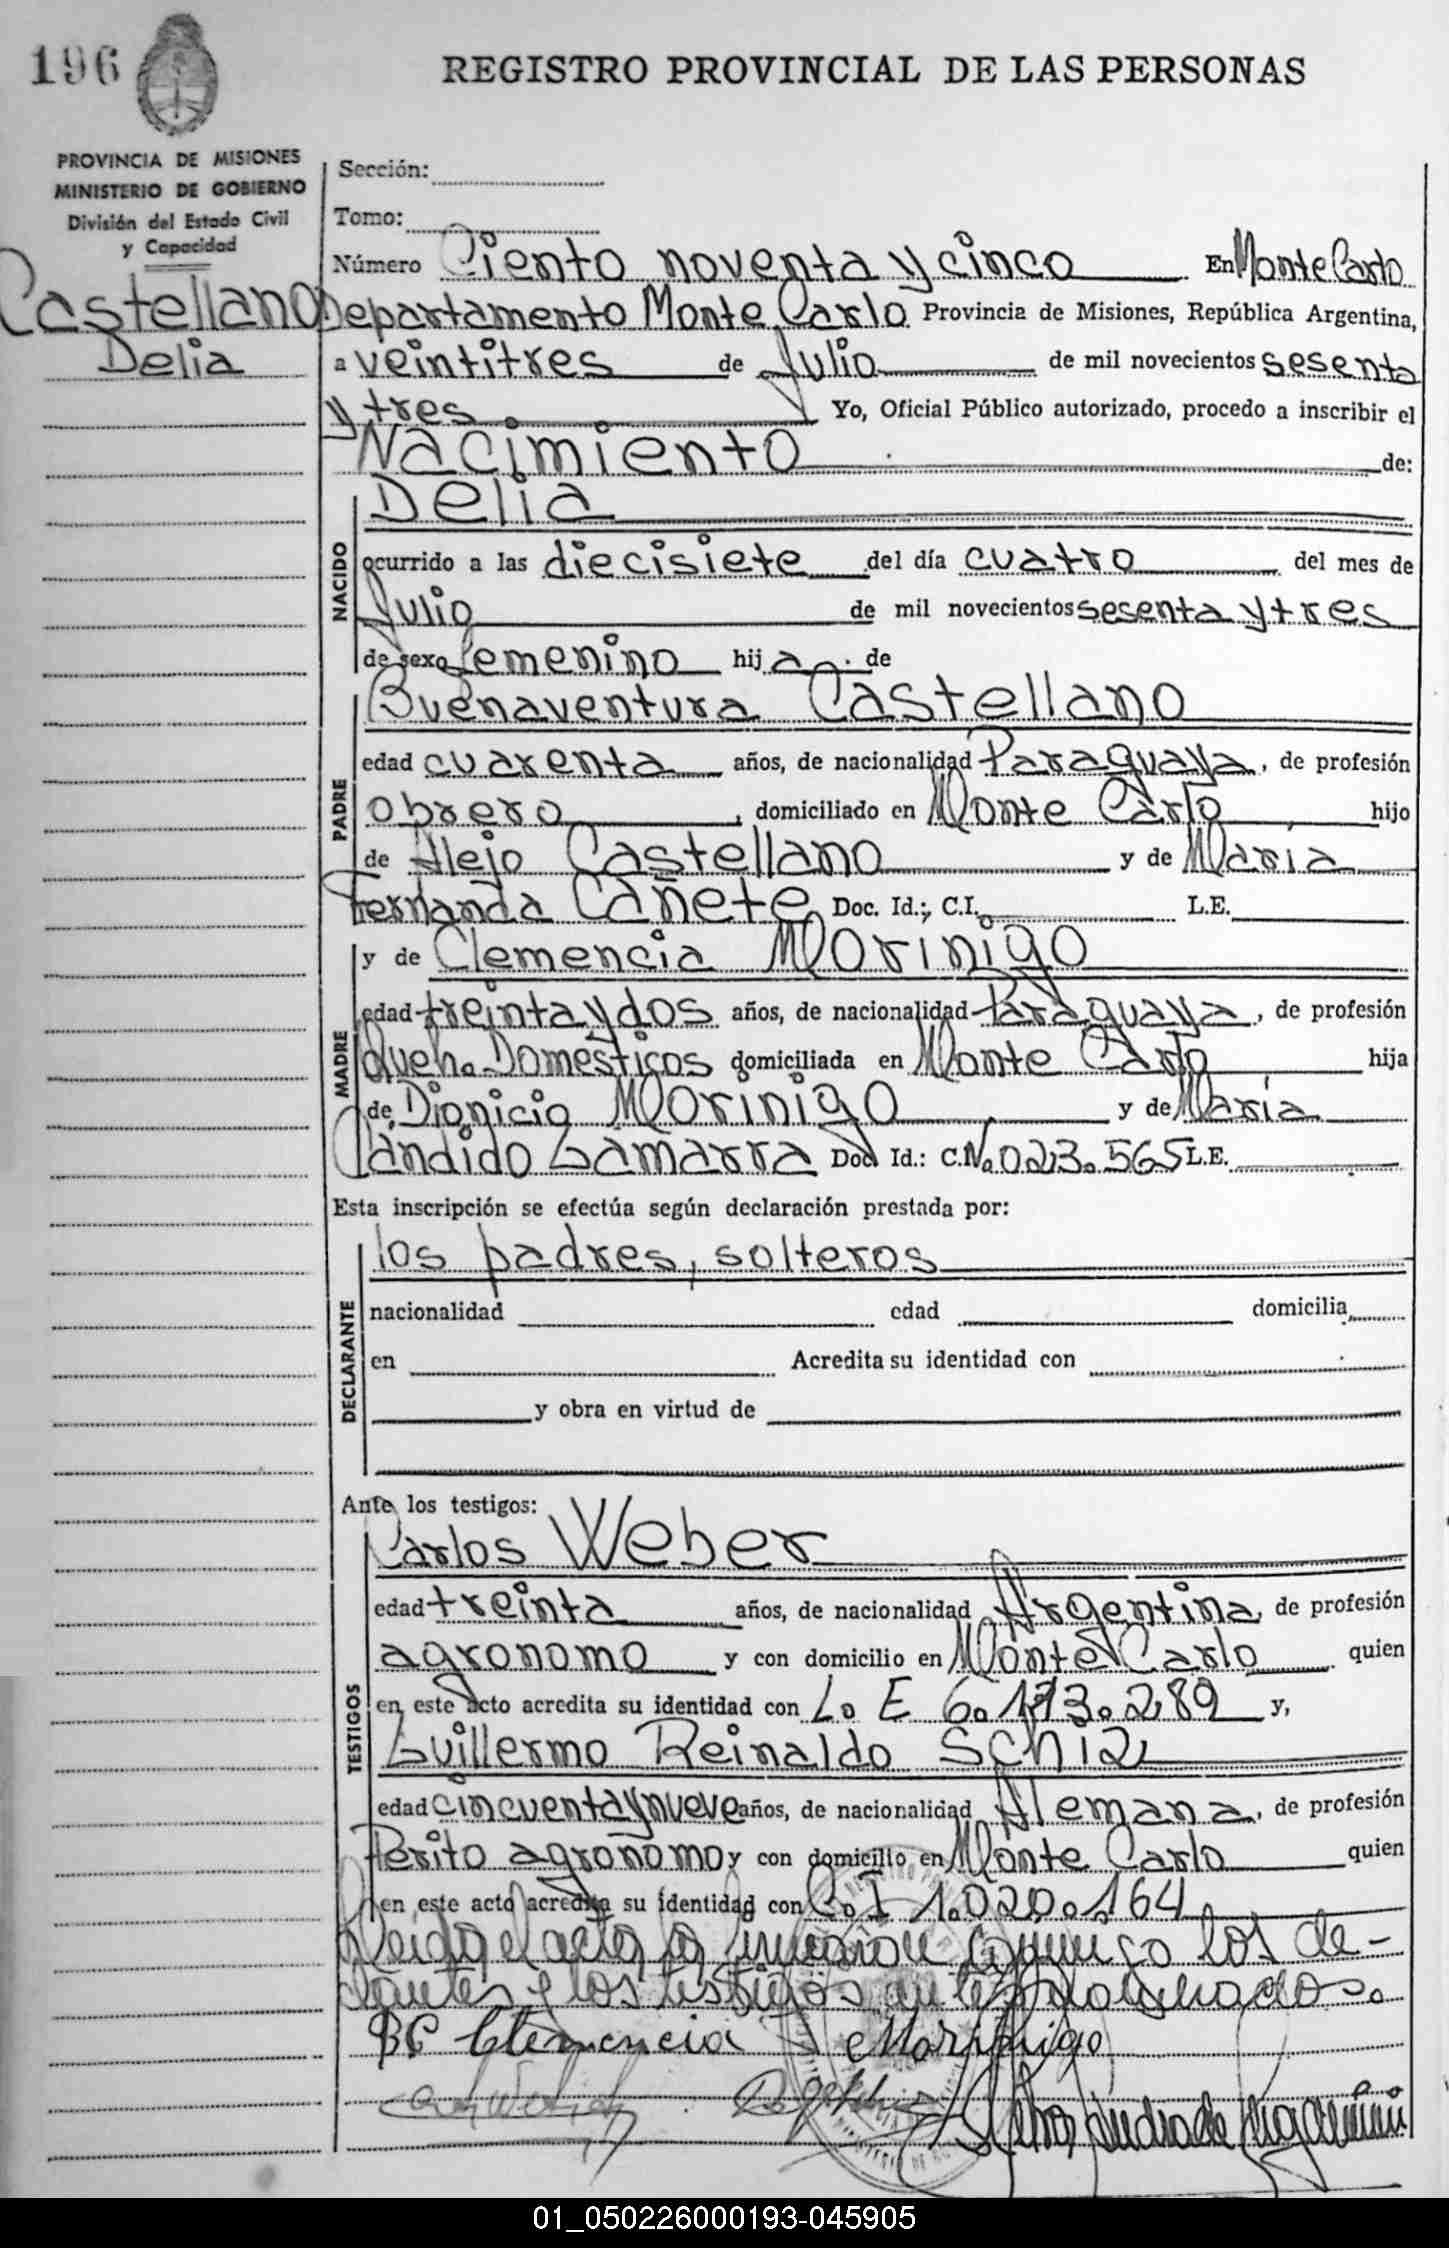 196
REGISTRO PROVINCIAL DE LAS PERSONAS
PROVINCIA DE MISIONES
MINISTERIO DE GOBIERNO
División del Estado Civil
y Capacidad
Castellano
Delia
Sección:
Tomo:
Número Ciento noventa y cinco En Monte Carlo
Departamento Monte Carlo Provincia de Misiones, República Argentina,
a veintitres de Julio de mil novecientos sesenta
y tres Yo, Oficial Público autorizado, procedo a inscribir el
Nacimiento de:
NACIDO
Delia
ocurrido a las diecisiete del día cuatro del mes de
Julio de mil novecientos sesenta y tres
de sexo femenino hija de
PADRE
Buenaventura Castellano
edad cuarenta años, de nacionalidad Paraguaya, de profesión
obrero, domiciliado en Monte Carlo hijo
de Alejo Castellano y de Maria
Fernanda Cañete Doc. Id.; C.I. L.E.
MADRE
y de Clemencia Morinigo
edad treinta y dos años, de nacionalidad Paraguaya, de profesión
Queh. Domesticos domiciliada en Monte Carlo hija
de Dionicio Morinigo y de Maria
Candido Zamarra Doc Id.: C.N. 023.565 L.E.
Esta inscripción se efectúa según declaración prestada por:
DECLARANTE
los padres, solteros
nacionalidad edad domicilia
en Acredita su identidad con
y obra en virtud de
Ante los testigos:
TESTIGOS
Carlos Weber
edad treinta años, de nacionalidad Argentina, de profesión
agronomo y con domicilio en Monte Carlo quien
en este acto acredita su identidad con L. E 6.173.289 y,
Guillermo Reinaldo Schiz
edad cincuenta y nueve años, de nacionalidad Alemana, de profesión
Perito agronomo y con domicilio en Monte Carlo quien
en este acto acredita su identidad con C. I 1.020.164
Leida el acta la firmaron conmigo los de-
clarantes y los testigos antes nombrados.
BC Clemencia Morinigo
01_050226000193-045905